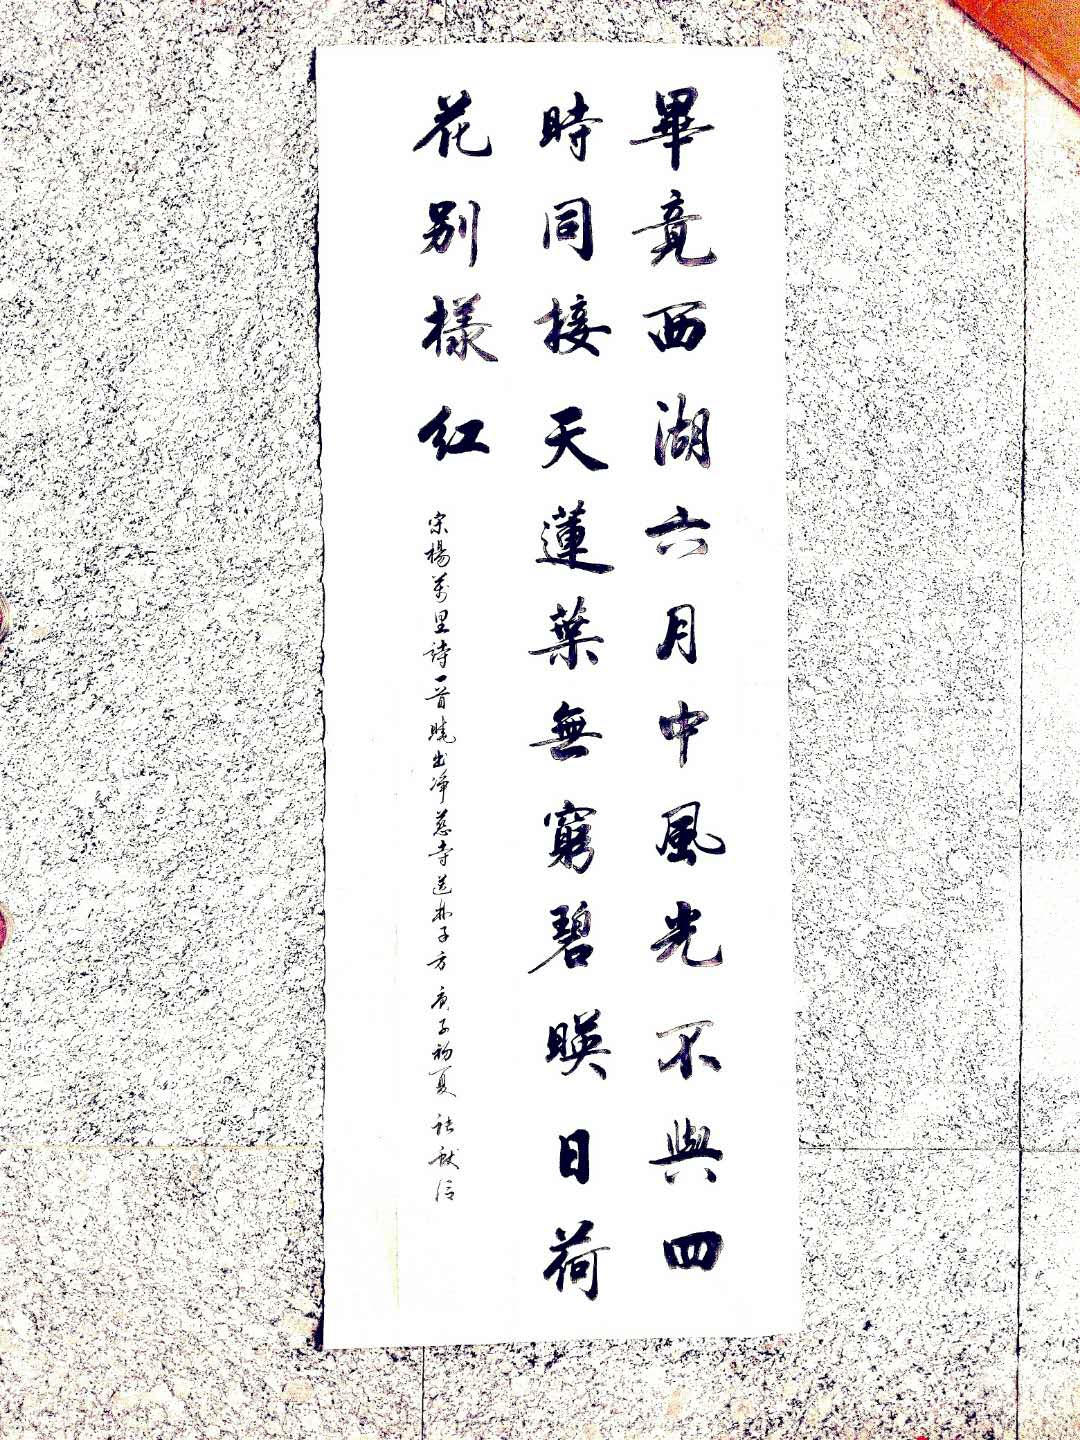 畢竟西湖六月中風光不與四
時同接天蓮葉無窮碧暎日荷
花别樣红
宋楊萬里詩一首曉出净慈寺送林子方 庚子初夏 献信